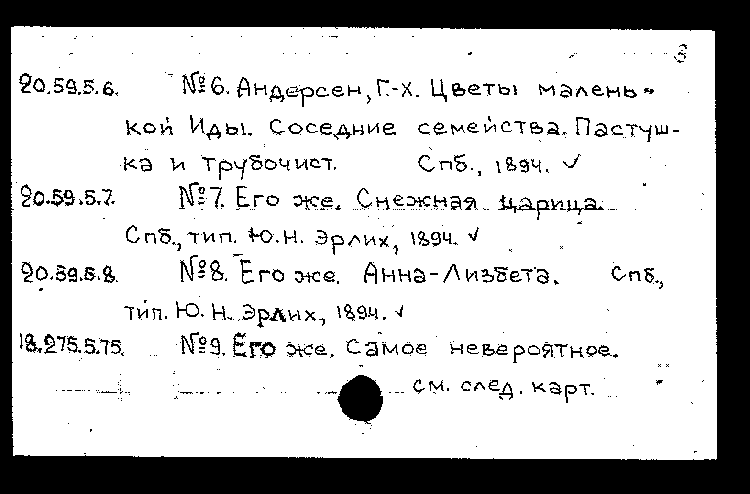 3
20.59.5.6. №6. Андерсен, Г.-Х. Цветы малень-
кой Иды. Соседние семейства. Пастуш-
ка и трубочист. Спб., 1894. ✓
20.59.5.7. №7. Его же. Снежная царица.
Спб., тип. Ю.Н. Эрлих, 1894. ✓
20.59.5.8. №8. Его же. Анна-Лизбета. Спб.,
тип. Ю.Н. Эрлих, 1894. ✓
18.275.5.75. №9. Его же. Самое невероятное.
см. след. карт.